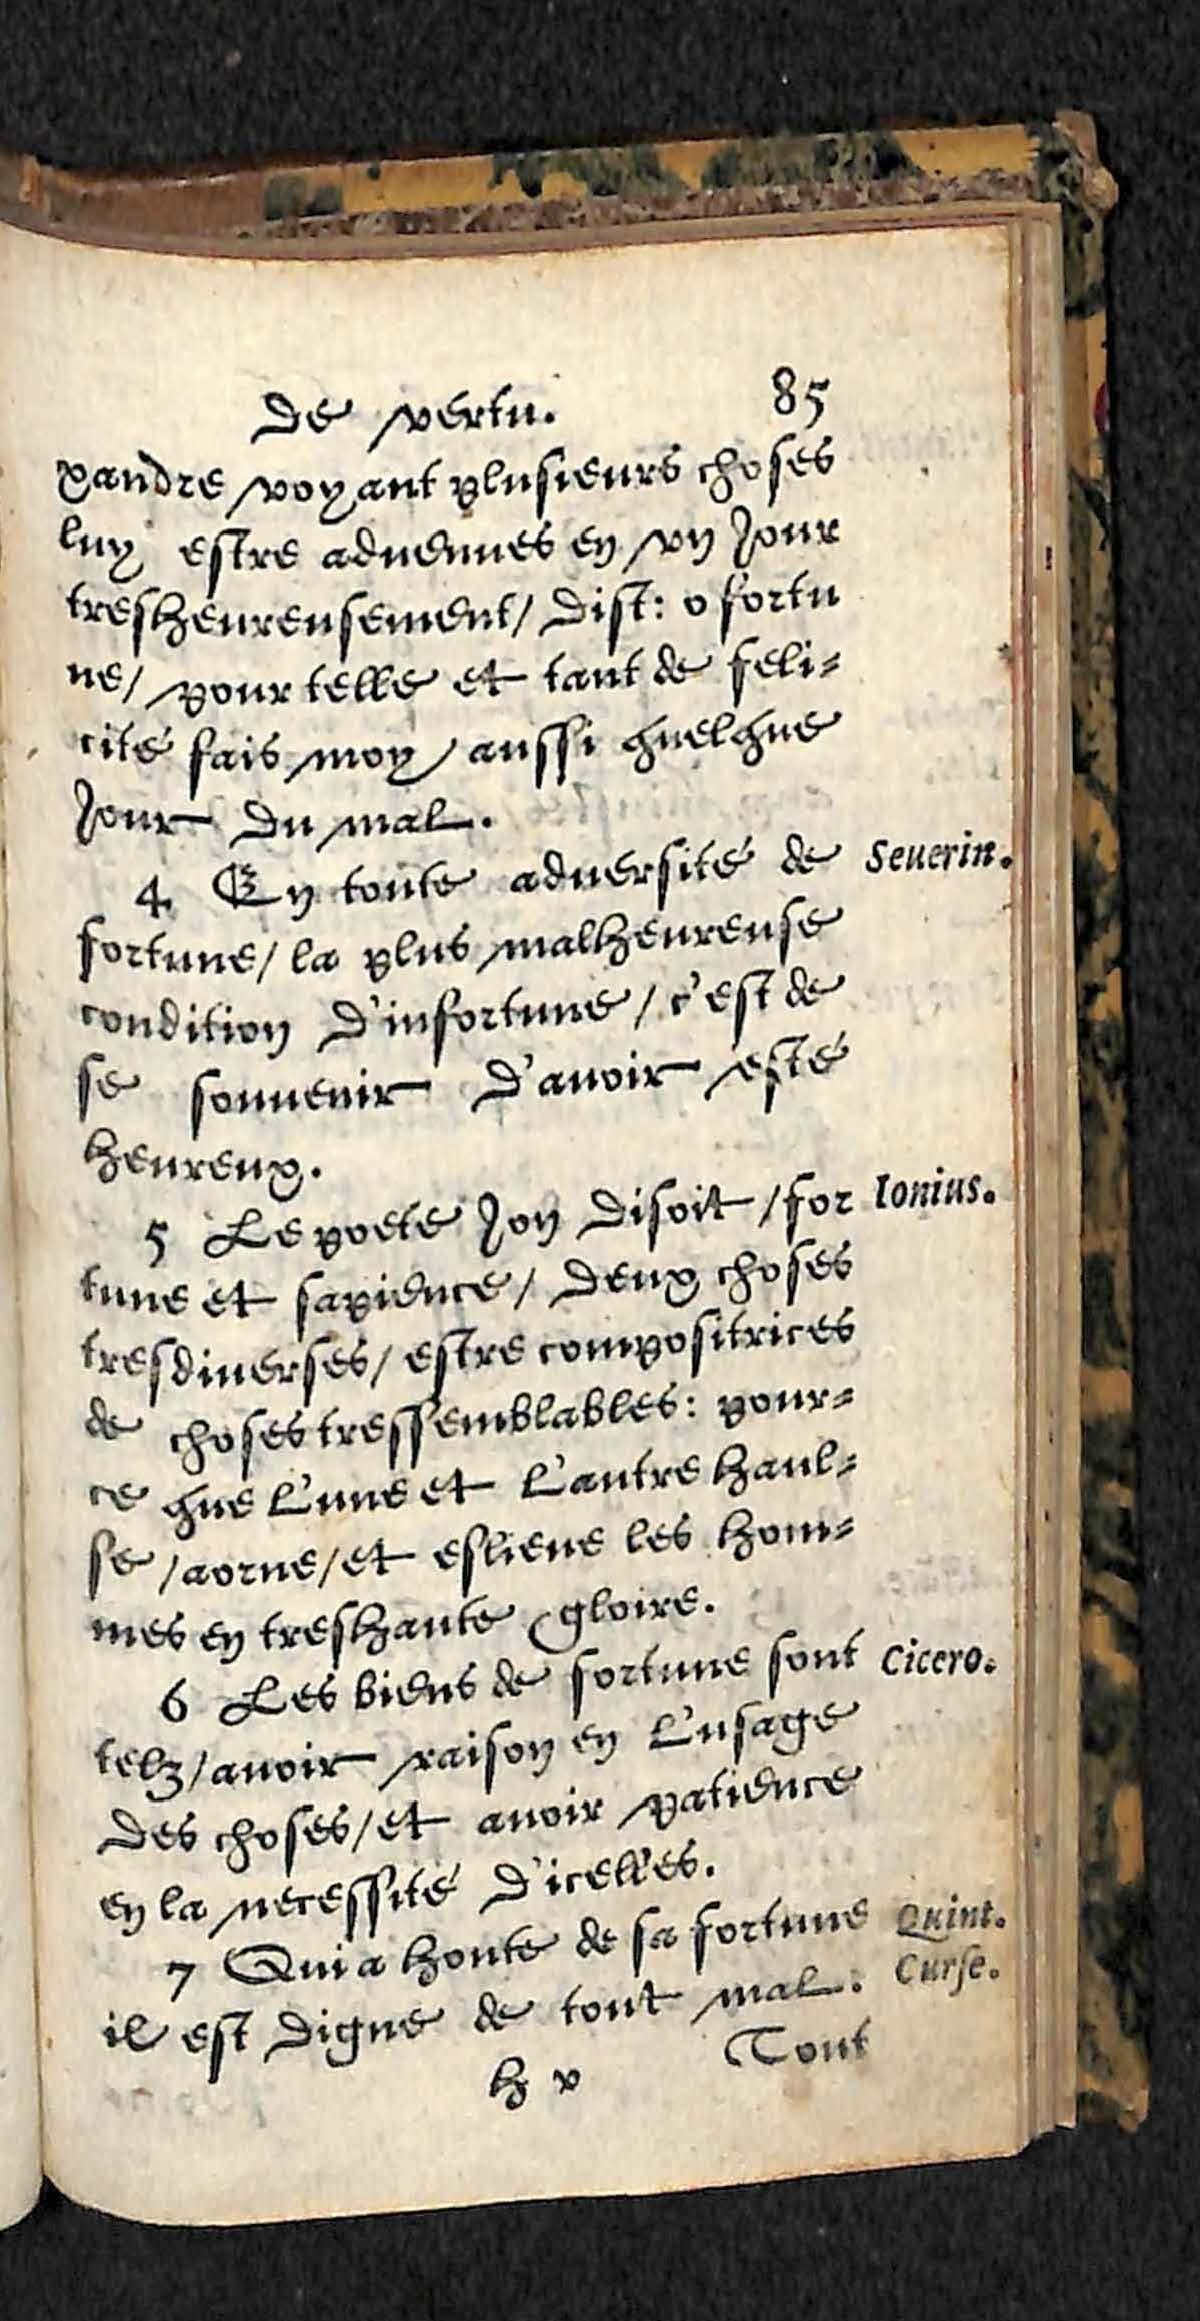 de vertu. 85
xandre voyant plusieurs choses
luy estre aduenues en vn Jour
tresheureusement/ dist: o fortu
ne/ pour telle et tant de feli-
cité fais moy aussi quelque
Jour du mal.
4 En toute aduersité de Seuerin.
fortune/ la plus malheureuse
condition d'infortune/ c'est de
se souuenir d'auoir esté
heureux.
5 Le poete Jon disoit/ for Ionius.
tune et sapience/ deux choses
tresdiuerses/ estre compositrices
de choses tressemblables: pour-
ce que l'une et l'autre haul-
se/ aorne/ et eslieue les hom-
mes en treshaute gloire.
6 Les biens de fortune sont Cicero.
telz/ auoir raison en l'usage
des choses/ et auoir patience
en la necessité d'icelles.
7 Qui a honte de sa fortune Quint.
il est digne de tout mal. Curse.
h v Tout